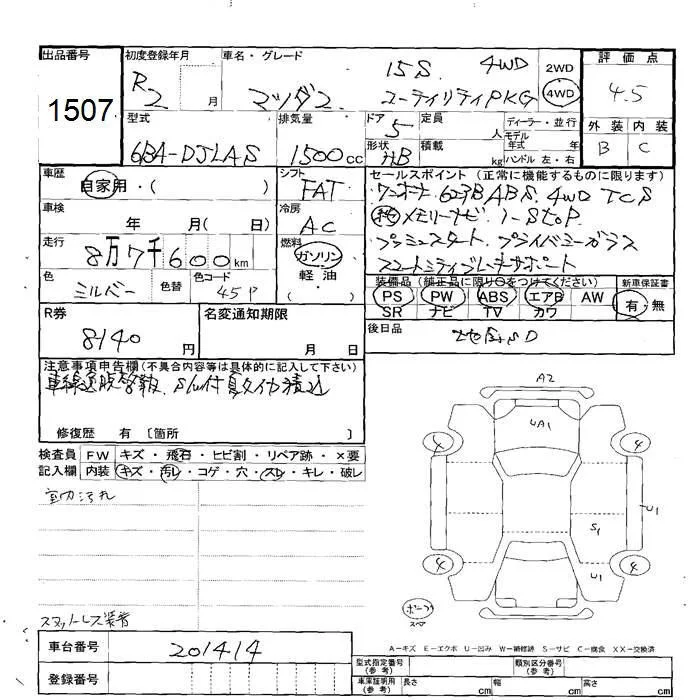 出品番号 初度登録年月 車名・グレード 評価点
1507 R2 月 マツダ2 15S 4WD ユーティリティPKG 2WD 4WD 4.5
型式 排気量 ドア 定員 ディーラー・並行 外装 内装
6BA-DJLAS 1500cc 5 人 モデル年式 年 B C
形状 積載 HB kg ハンドル 左・右
車歴 シフト セールスポイント (正常に機能するものに限ります)
自家用・( ) FAT ABS 4WD TCS
車検 冷房 メモリーナビ i-StoP
年 月( 日) AC プッシュスタート プライバシーガラス
走行 燃料 スマートシティブレーキサポート
8万7千600km ガソリン・軽油
色 色替 色コード 装備品(純正品に限り○をつけてください) 新車保証書
シルバー 45P ( ) PS PW ABS エアB AW 有・無
SR ナビ TV カワ
R券 名変通知期限 後日品
8140円 月 日 SD
注意事項申告欄(不具合内容等は具体的に記入して下さい)
修復歴 有 〔箇所 〕
検査員 FW キズ・飛石・ヒビ割・リペア跡・×要
記入欄 内装 キズ・汚レ・コゲ・穴・スレ・キレ・破レ
室内汚れ
A2
UA1
4 4
U1
S1
4 U1 4
スペアレス装着
A-キズ E-エクボ U-凹み W-補修跡 S-サビ C-腐食 XX-交換済
車台番号 201414
登録番号
型式指定番号(参考) 類別区分番号(参考)
車庫証明用(参考) 長さ cm 幅 cm 高さ cm